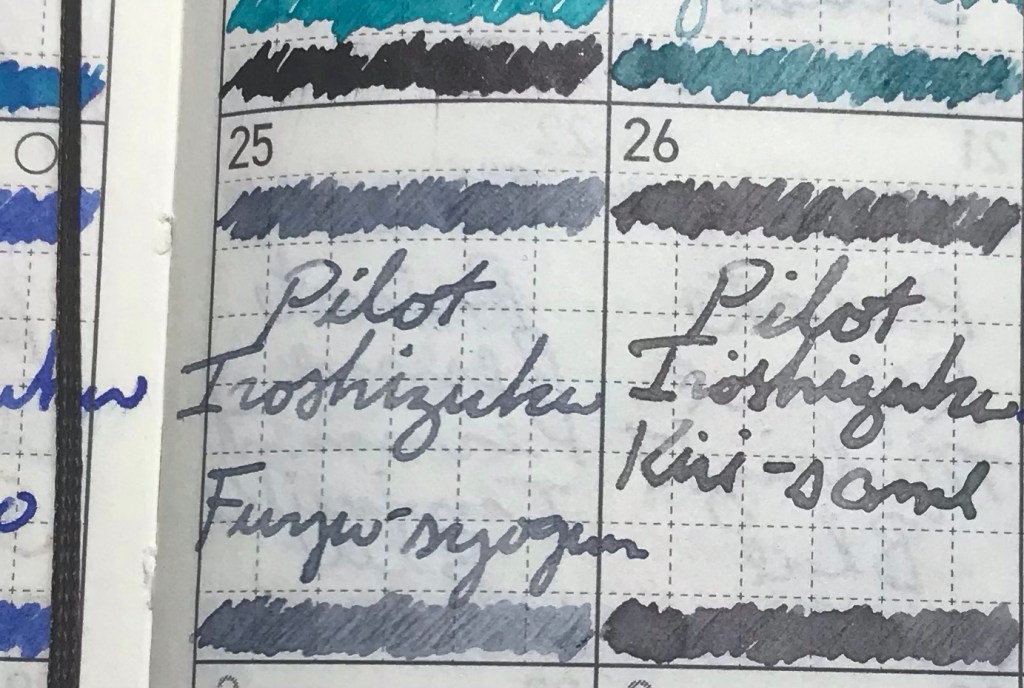 25
Pilot
Iroshizuku
Fuyu-syogun
26
Pilot
Iroshizuku
Kiri-same